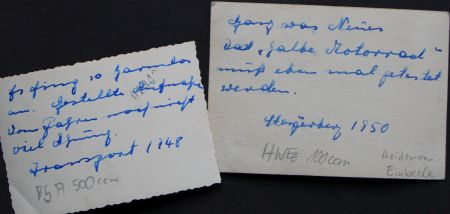 Es fing so harmlos
an. Gestellte Aufnahme
vom Fahren noch nicht
viel Ahnung.
Transport 1948
BSA 500 ccm
Ganz was Neues
Das "halbe Motorrad"
muß eben mal getestet
werden.
1950
100 ccm
Heidemann
Einbeck